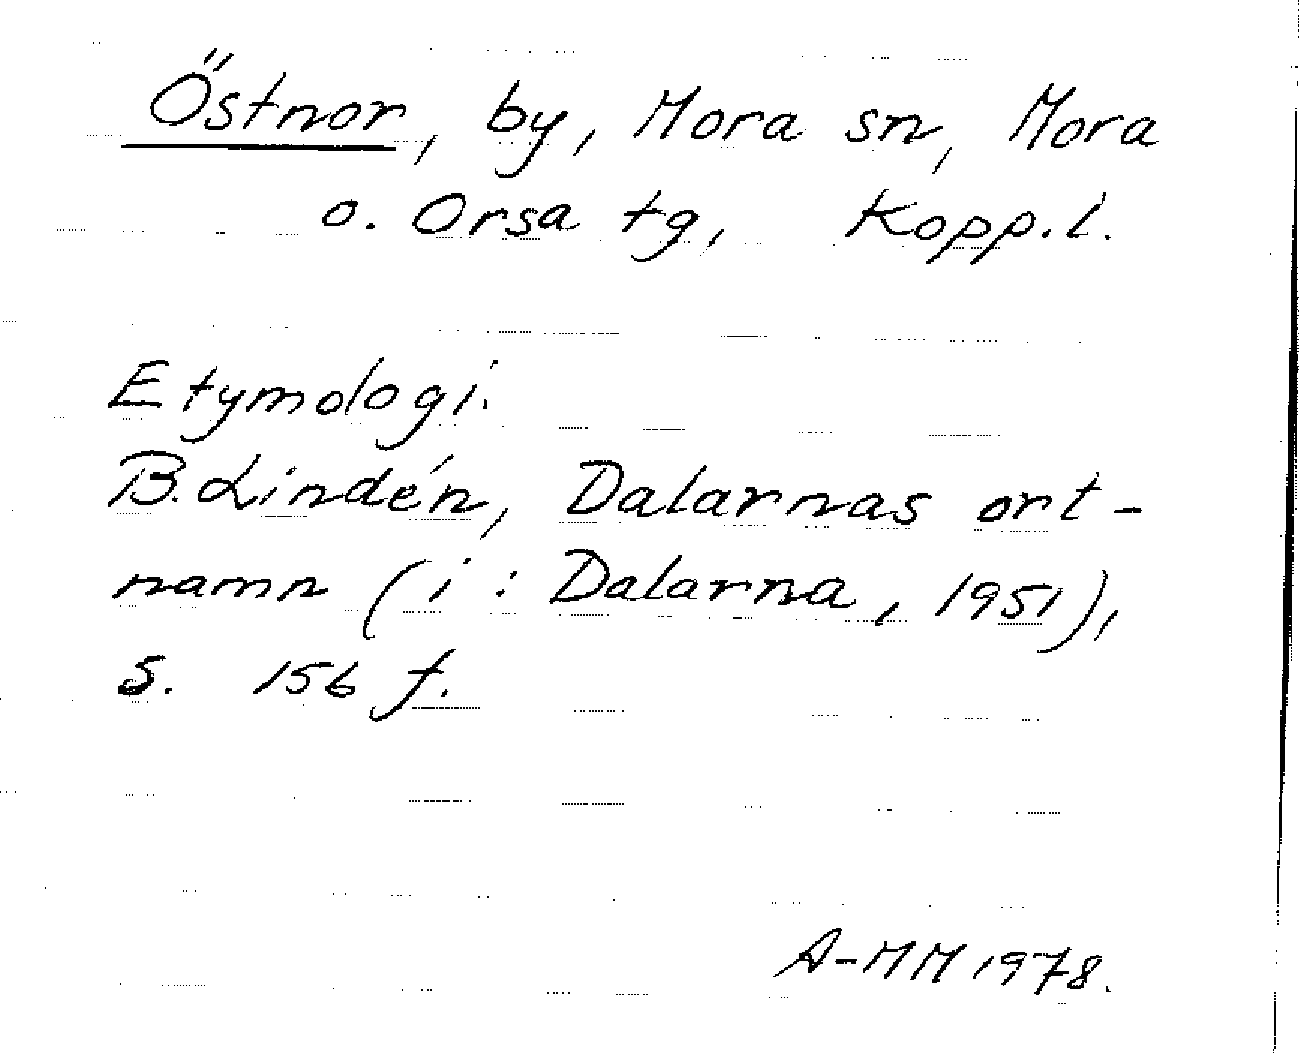 Östnor, by, Mora sn, Mora
o. Orsa tg, Kopp.l.
Etymologi.
B. Lindén, Dalarnas ort-
namn (i: Dalarna, 1951),
s. 156 f.
A-MM 1978.